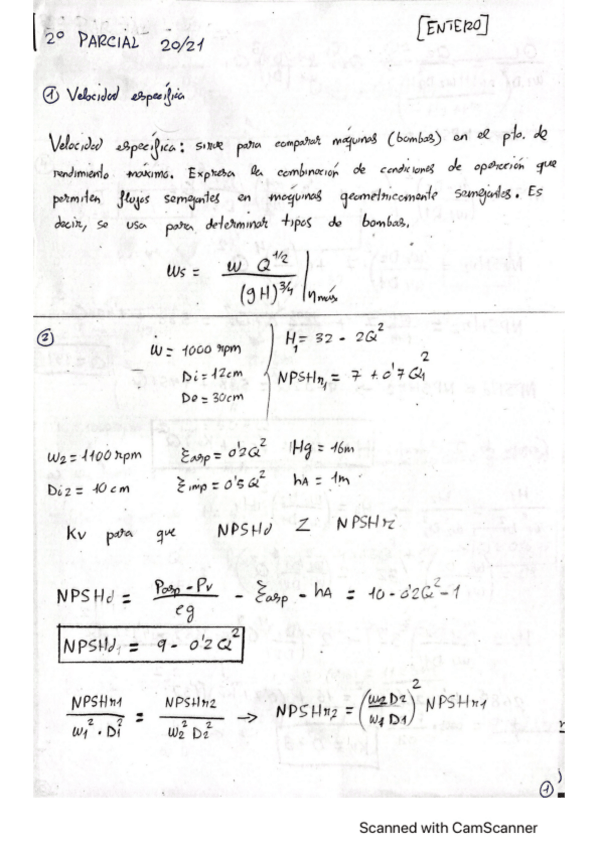 [ENTERO]
2º PARCIAL 20/21
① Velocidad específica
Velocidad específica: sirve para comparar máquinas (bombas) en el pto. de
rendimiento máximo. Expresa la combinación de condiciones de operación que
permiten flujos semejantes en máquinas geométricamente semejantes. Es
decir, se usa para determinar tipos de bombas.
Ws = W Q^1/2 / (gH)^3/4 | ηmáx
②
W = 1000 rpm
Di = 12cm
Do = 30cm
H1 = 32 - 2Q^2
NPSHr1 = 7 + 0'7 Q1^2
W2 = 1100 rpm ξasp = 0'2Q^2 Hg = 16m
Di2 = 10 cm ξimp = 0'5Q^2 hA = 1m
Kv para que NPSHd ≥ NPSHr
NPSHd = (Pasp - Pv) / ρg - ξasp - hA = 10 - 0'2Q^2 - 1
NPSHd1 = 9 - 0'2Q^2
NPSHr1 / (W1^2 · Di^2) = NPSHr2 / (W2^2 Di^2) → NPSHr2 = (W2 D2 / W1 D1)^2 NPSHr1
①
Scanned with CamScanner